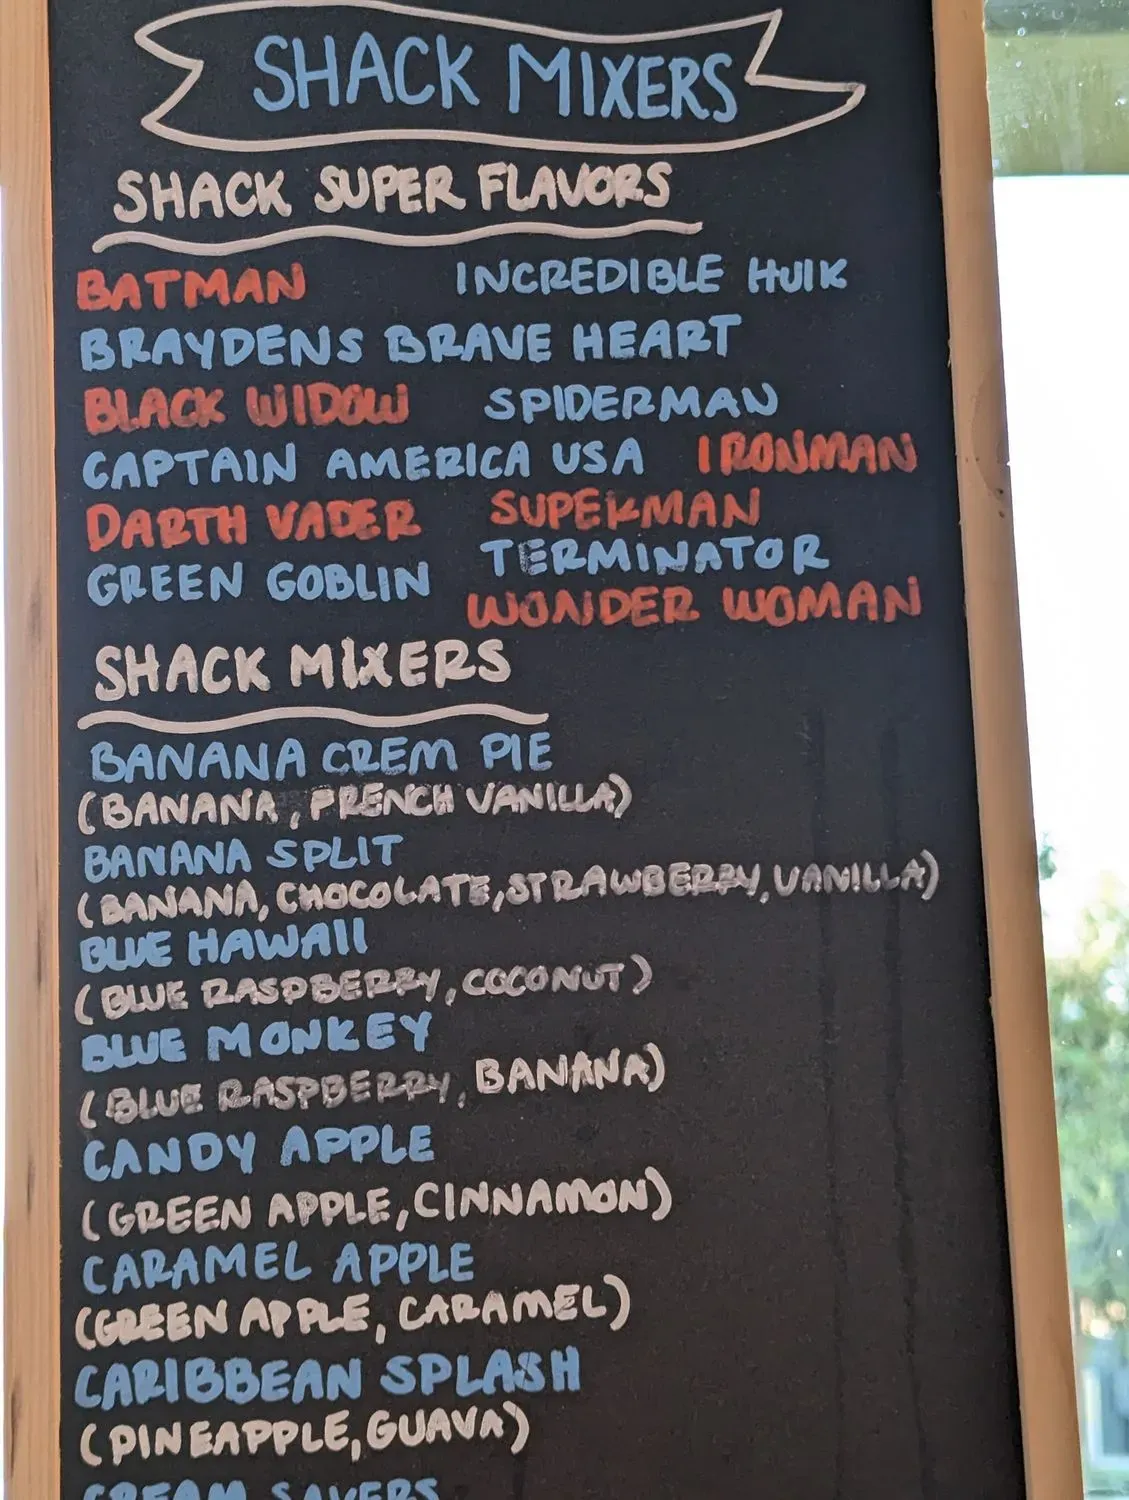 SHACK MIXERS
SHACK SUPER FLAVORS
BATMAN INCREDIBLE HULK
BRAYDENS BRAVE HEART
BLACK WIDOW SPIDERMAN
CAPTAIN AMERICA USA IRONMAN
DARTH VADER SUPERMAN
GREEN GOBLIN TERMINATOR
WONDER WOMAN
SHACK MIXERS
BANANA CREM PIE
(BANANA, FRENCH VANILLA)
BANANA SPLIT
(BANANA, CHOCOLATE, STRAWBERRY, VANILLA)
BLUE HAWAII
(BLUE RASPBERRY, COCONUT)
BLUE MONKEY
(BLUE RASPBERRY, BANANA)
CANDY APPLE
(GREEN APPLE, CINNAMON)
CARAMEL APPLE
(GREEN APPLE, CARAMEL)
CARIBBEAN SPLASH
(PINEAPPLE, GUAVA)
CREAM SAVERS